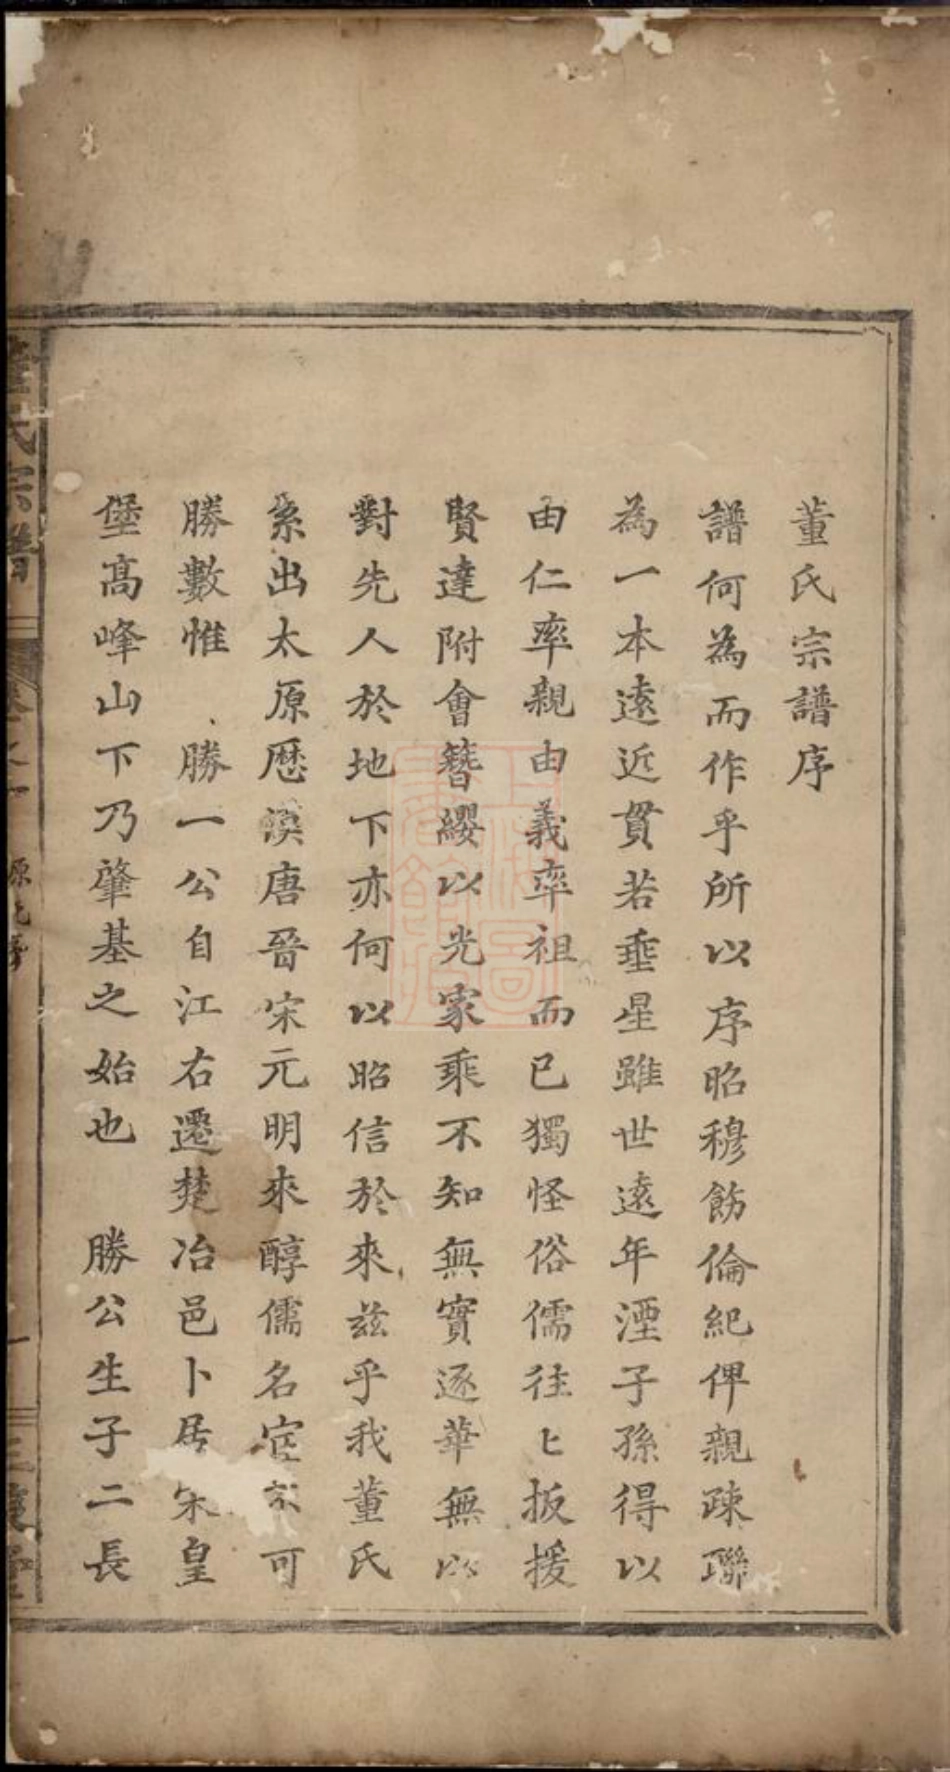 董氏宗譜序
譜何為而作乎所以序昭穆飭倫紀俾親疎聯
為一本遠近貫若垂星雖世遠年湮子孫得以
由仁率親由義率祖而已獨怪俗儒往〻扳援
賢達附會簪纓以光家乘不知無實逐華無以
對先人於地下亦何以昭信於來茲乎我董氏
系出太原歷漢唐晉宋元明來醇儒名宦不可
勝數惟 勝一公自江右遷楚冶邑卜居朱皇
堡高峰山下乃肇基之始也 勝公生子二長
董氏宗譜 卷之一 源流序 一 三策堂
上海圖書館藏